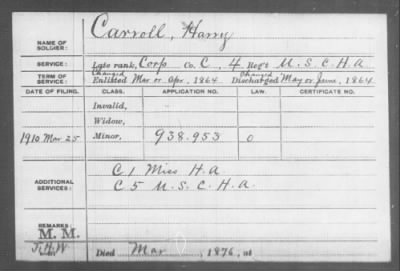 NAME OF SOLDIER: Carroll, Harry
SERVICE: Late rank, Corp Co. C, 4 Reg't U.S.C.H.A.
TERM OF SERVICE: Changed Enlisted Mar or Apr, 1864 Changed Discharged May or June, 1864
DATE OF FILING. CLASS. APPLICATION NO. LAW. CERTIFICATE NO.
Invalid,
Widow,
1910 Mar 25 Minor, 938.953 0
ADDITIONAL SERVICES: C 1 Miss H.A.
C 5 U.S.C.H.A.
REMARKS:
M. M.
Died Mar, 1876, at